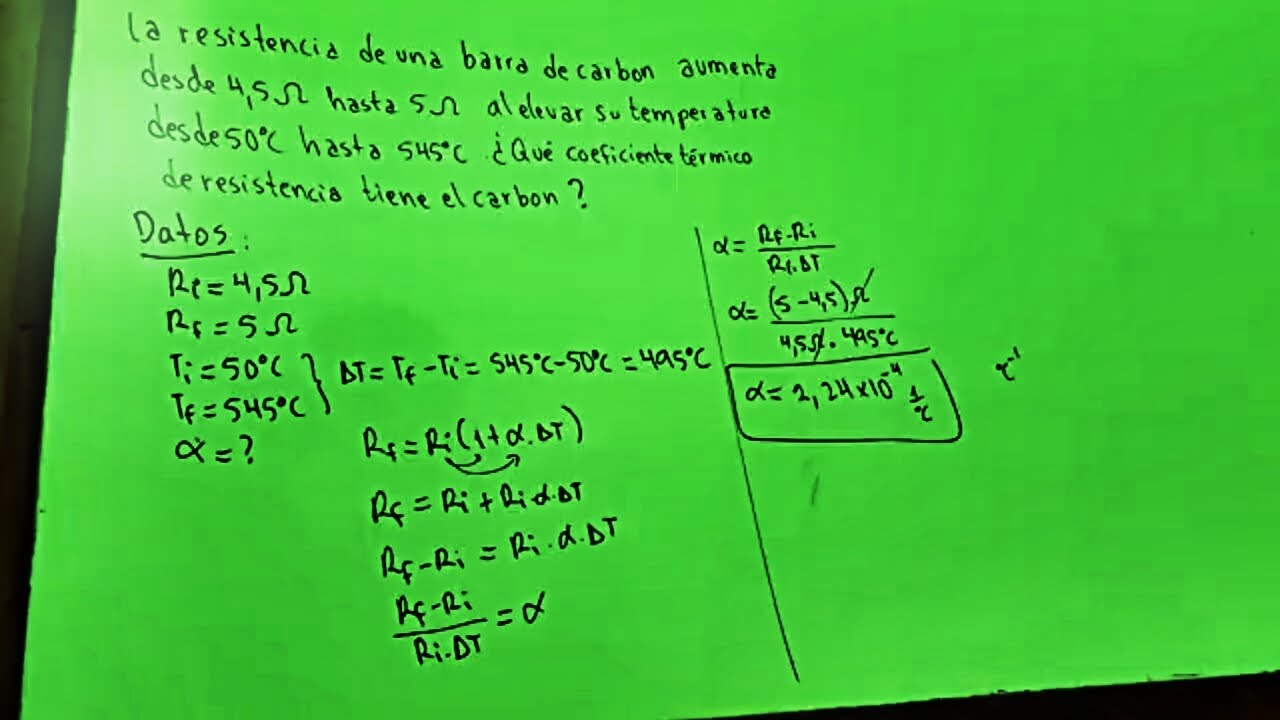 La resistencia de una barra de carbon aumenta
desde 4,5Ω hasta 5Ω al elevar su temperatura
desde 50°C hasta 545°C. ¿Qué coeficiente térmico
de resistencia tiene el carbon?
Datos:
Ri = 4,5Ω
Rf = 5Ω
Ti = 50°C
Tf = 545°C
ΔT = Tf - Ti = 545°C - 50°C = 495°C
α = ?
Rf = Ri(1 + α.ΔT)
Rf = Ri + Ri α.ΔT
Rf - Ri = Ri . α . ΔT
Rf - Ri / Ri.ΔT = α
α = Rf - Ri / Ri.ΔT
α = (5 - 4,5)Ω / 4,5Ω . 495°C
α = 2,24 x 10⁻⁴ 1/°C
°C⁻¹